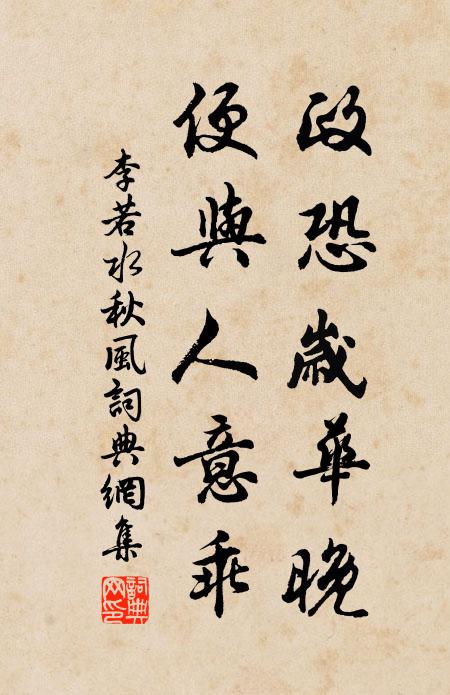 政恐歲華晚
便與人意乖
李若水秋風詞典網集
詞典網印